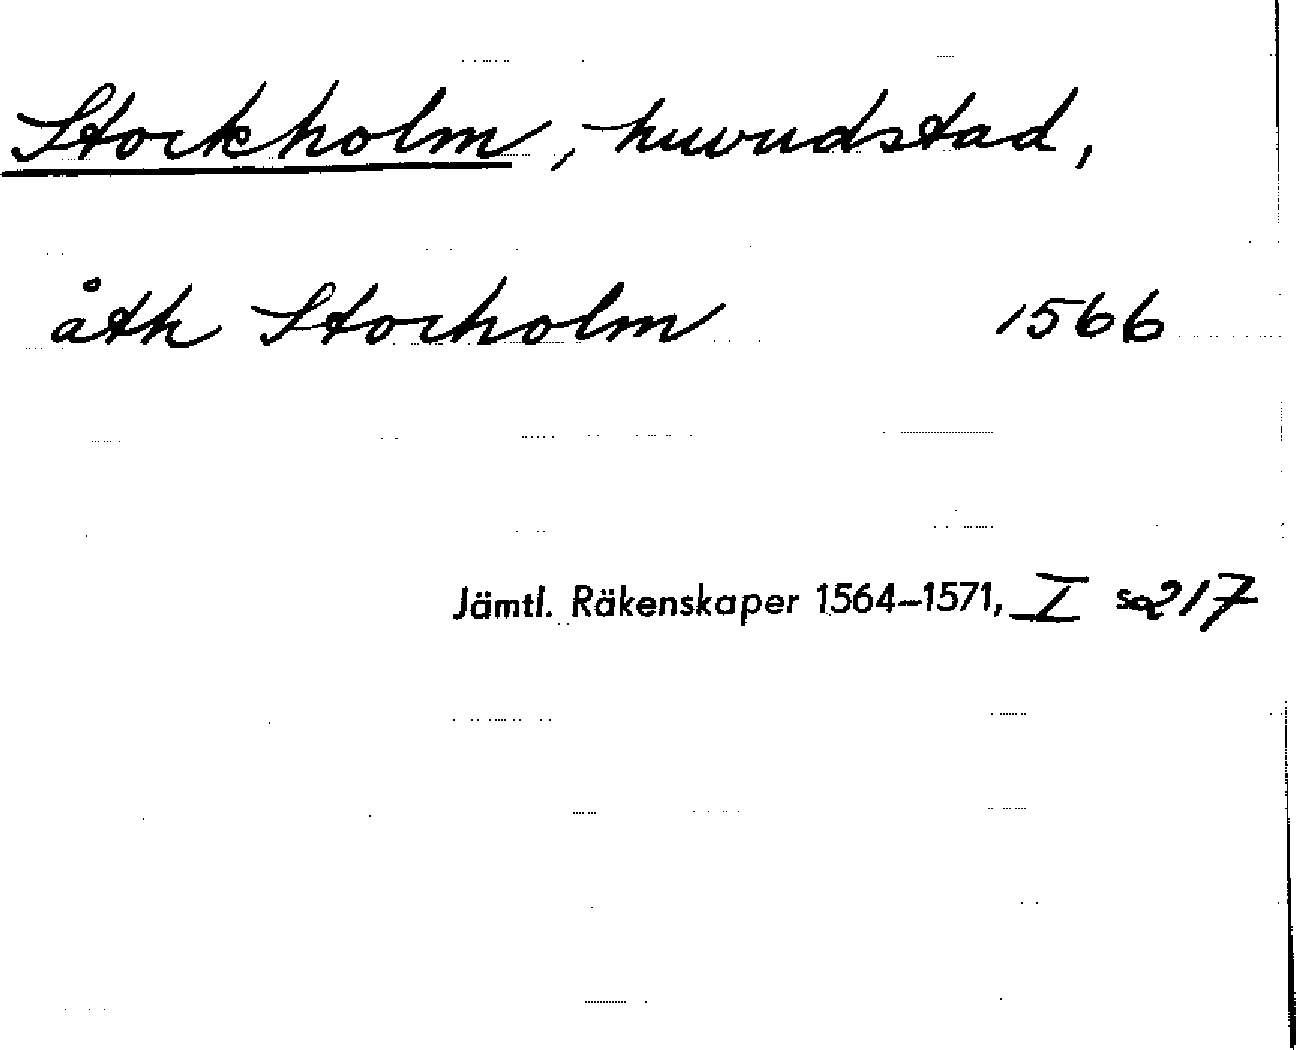 Stockholm, huvudstad,
åth Stocholm 1566
Jämtl. Räkenskaper 1564–1571, I s 217